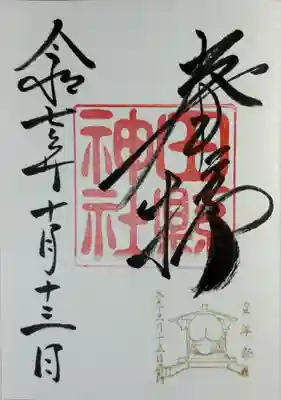 奉拝
田縣
神社
豊年祭
令和七年十月十三日